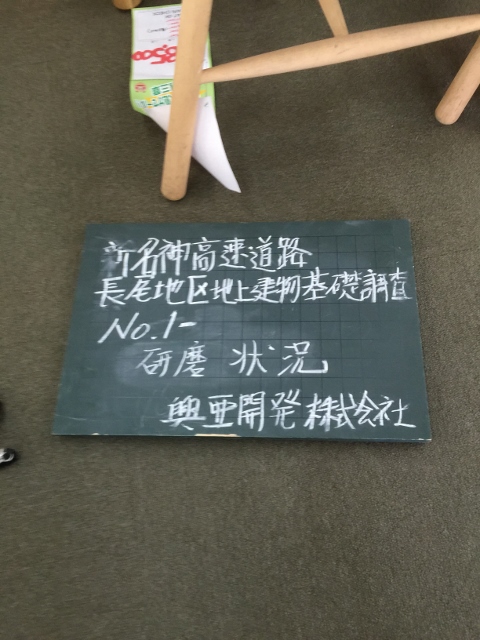 新名神高速道路
長尾地区地上建物基礎調査
No.1-
研磨 状況
興亜開発株式会社